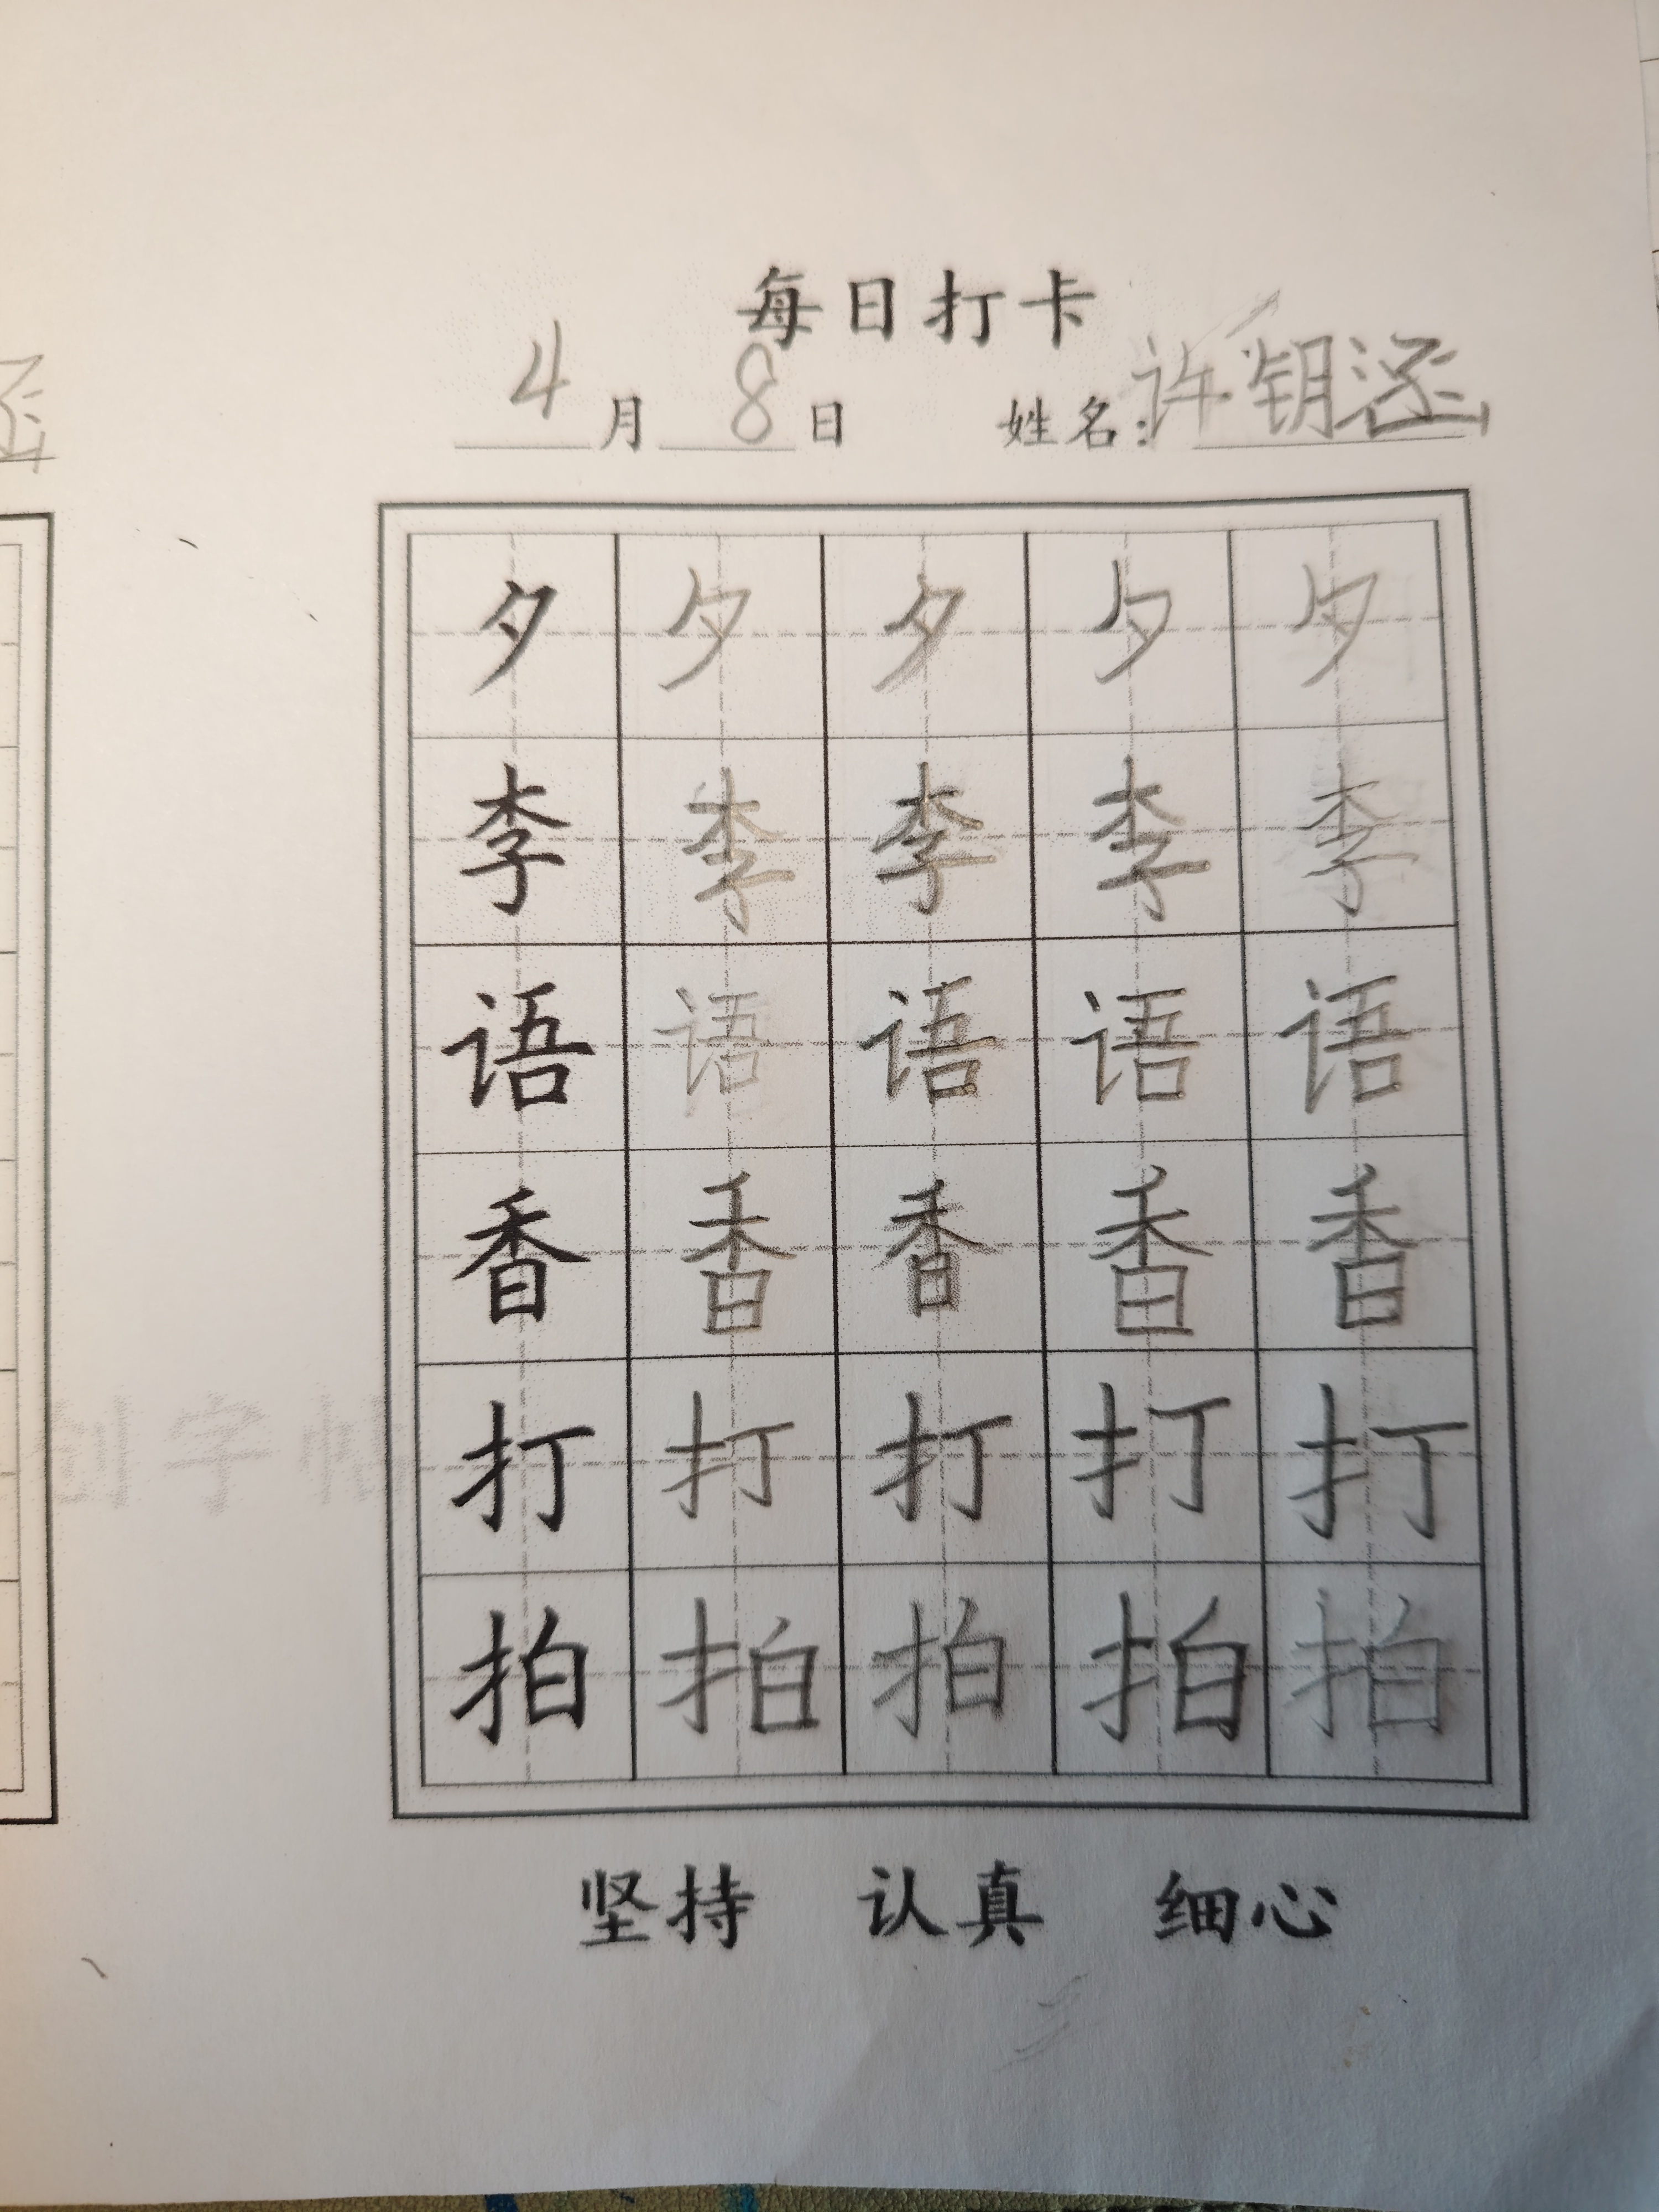 每日打卡
4月8日 姓名:许钥涵
夕夕夕夕夕
李李李李李
语语语语语
香香香香香
打打打打打
拍拍拍拍拍
坚持 认真 细心